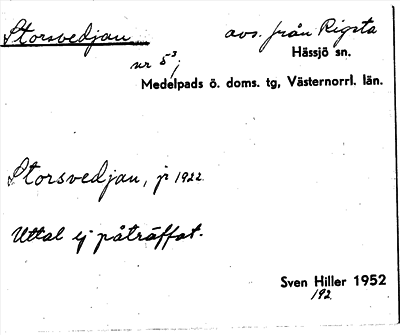 Storsvedjan avs. från Rigsta
nr 5³, Hässjö sn.
Medelpads ö. doms. tg, Västernorrl. län.
Storsvedjan, jr 1922
Uttal ej påträffat.
Sven Hiller 1952
192